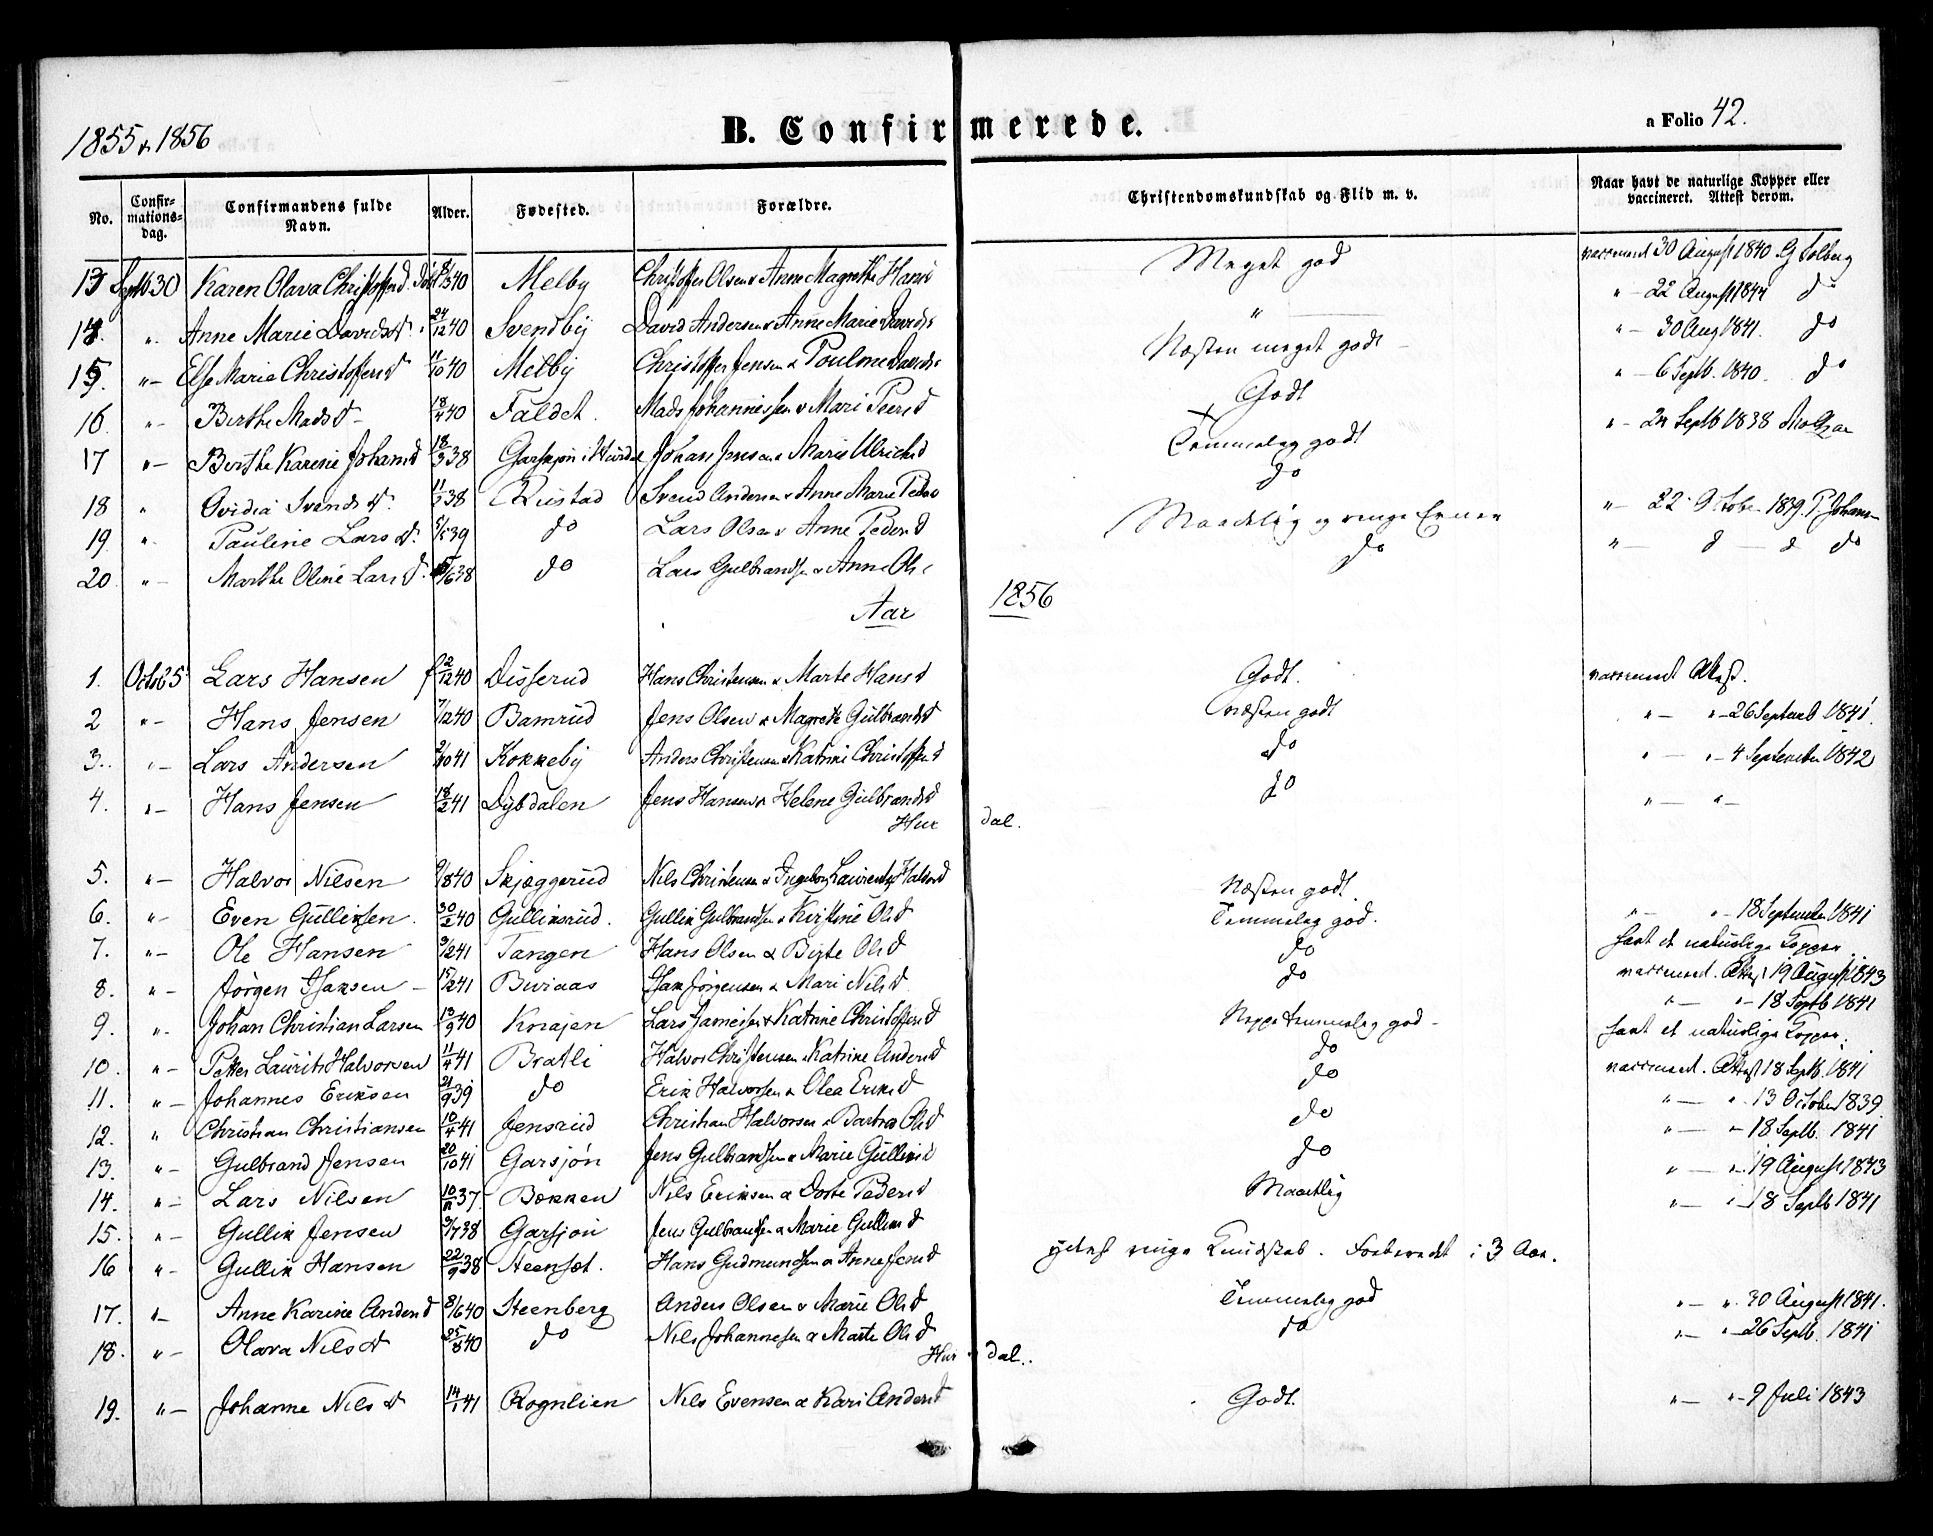 1855 & 1856
B. Confirmerede.
a Folio 42.
No. Confirmationsdag. Confirmandens fulde Navn. Alder. Fødested. Forældre. Christendomskundskab og Flid m. v. Naar havt de naturlige Kopper eller vaccineret. Attest derom.
13 Septb 30 Karen Olava Christoffersd. 40 Melby Christoffer Olsen & Anne Magrethe Hansd Meget god vaccineret 30 August 1840 G Solberg
14 " Anne Marie Davidsd. 24/12 40 Svendby David Andersen & Anne Marie Davidsd " " 22 August 1844 do
15. " Else Marie Christoffersd 11/10 40 Melby Christoffer Jensen & Pouline Davidsd Næsten meget godt " 30 Aug 1841. do
16. " Berthe Madsd 18/4 40 Faldet. Mads Johannessen & Mari Peersd Godt " 6 Septb. 1840. do
17 " Berthe Karenie Johansd 18/3 38 Garsjøn i Hurdal Johan Jensen & Marie Ulrichsd Temmelig godt " 24 Septb 1838
18 " Ovidia Svendsd. 11/3 38 Rustad Svend Andersen & Anne Marie Pedersd do
19 " Pauline Larsd. 5/5 39 do Lars Olsen & Anne Pedersd Maadelig og ringe Evner " 22 October 1839. P Johans
20 " Marthe Oline Larsd. /6 38 do Lars Gulbrandsen & Anne Olsd do " d d do
Aar 1856
1. Octob 5 Lars Hansen f 2/12 40 Disserud Hans Christensen & Marte Hansd Godt. vaccineret Attest.
2 " Hans Jensen 7/12 40 Bamrud Jens Olsen & Magrete Gulbrandsd næsten godt " " 26 Septemb 1841.
3. " Lars Andersen 2/10 41 Kokkeby Anders Christensen & Katrine Christoffersd do " " 4 September 1842
4. " Hans Jensen 18/2 41 Dybdalen Jens Hansen & Helene Gulbrandsd do " "
Hurdal.
5. " Halvor Nilsen 9/8 40 Skjæggerud Nils Christensen & Ingeborg Laurentze Halvorsd Næsten godt.
6. " Even Gulliksen. 30/2 40 Gulliksrud. Gullik Gulbrandsen & Kristine Olsd Temmelig god. " " 18 September 1841
7. " Ole Hansen 9/2 41 Tangen Hans Olsen & Birte Olsd do havt de naturlige Kopper.
8. " Jørgen Isaksen 15/2 41 Buraas Isak Jørgensen & Mari Nilsd. do vaccineret. Attest 19 August 1843
9. " Johan Christian Larsen 13/9 40 Knajen Lars & Katrine Christoffersd Neppe temmelig god " " 18 Septb 1841
10. " Petter Laurits Halvorsen 11/4 41 Bratli Halvor Christensen & Katrine Andersd do havt de naturlige Kopper.
11. " Johannes Eriksen 21/9 39 do Erik Halvorsen & Olea Eriksd do vaccineret. Attest 18 Septb. 1841
12. " Christian Christiansen 10/4 41 Jensrud Christian Halvorsen & Barbro Olsd do " " 13 October 1839.
13. " Gulbrand Jensen 20/10 41 Garsjøn Jens Gulbrandsen & Marie Gulliksd do " " 18 Septb. 1841
14. " Lars Nilsen 10/11 37. Bækken Nils Eriksen & Dorte Pedersd Maadelig " " 19 August 1843
15. " Gullik Jensen 9/7 38 Garsjøn Jens Gulbrandsen & Marie Gulliksd " " 18 Septb 1841
16 " Gullik Hansen 22/9 38 Steensæt. Hans Gudmundsen & Anne Jensd yderst ringe Kundskab. Forberedt i 3 Aar.
17. " Anne Karine Andersd 8/6 40 Steenberg Anders Olsen & Marie Olsd Temmelig god " " 30 August 1841.
18. " Olava Nilsd 25/8 40 do Nils Johannesen & Marte Olsd do " " 26 Septb. 1841
Hurdal.
19. " Johanne Nilsd 14/1 41 Rognlien Nils Evensen & Kari Andersd Godt. " " 9 Juli 1843